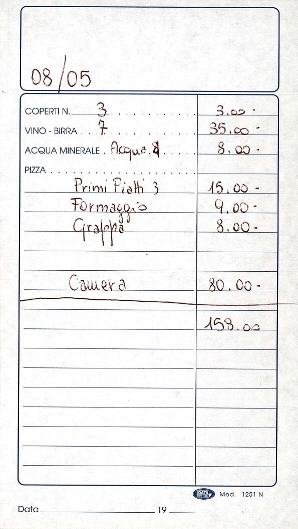 08/05
COPERTI N. 3 3.00-
VINO - BIRRA . 7 35.00-
ACQUA MINERALE . Acqua. 4 8.00-
PIZZA
Primi Piatti 3 15.00-
Formaggio 9.00-
Grappa 8.00-
Camera 80.00-
158.00
Mod. 1251 N
Data 19